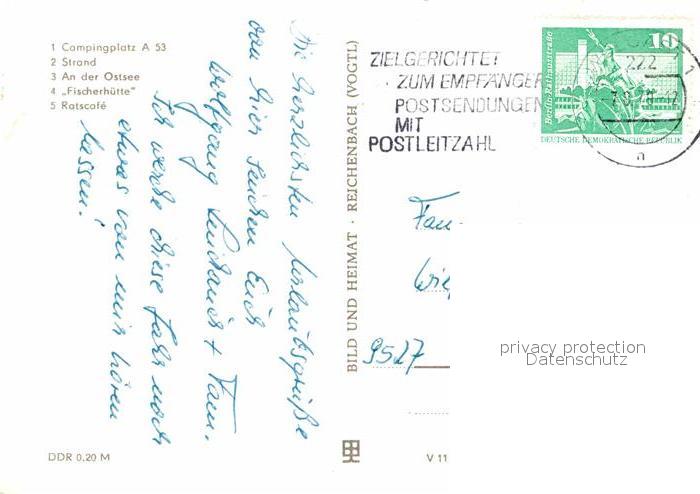 1 Campingplatz A 53
2 Strand
3 An der Ostsee
4 „Fischerhütte"
5 Ratscafé
Die herzlichsten Urlaubsgrüße
von hier senden Euch
Wolfgang + Fam.
Ich werde diese Jahr noch
etwas von mir hören
lassen!
DDR 0,20 M
BILD UND HEIMAT · REICHENBACH (VOGTL)
V 11
ZIELGERICHTET
· ZUM EMPFÄNGER
POSTSENDUNGEN
MIT
POSTLEITZAHL
222
a
10
Berlin, Rathausstraße
DEUTSCHE DEMOKRATISCHE REPUBLIK
Fam
9527
privacy protection
Datenschutz